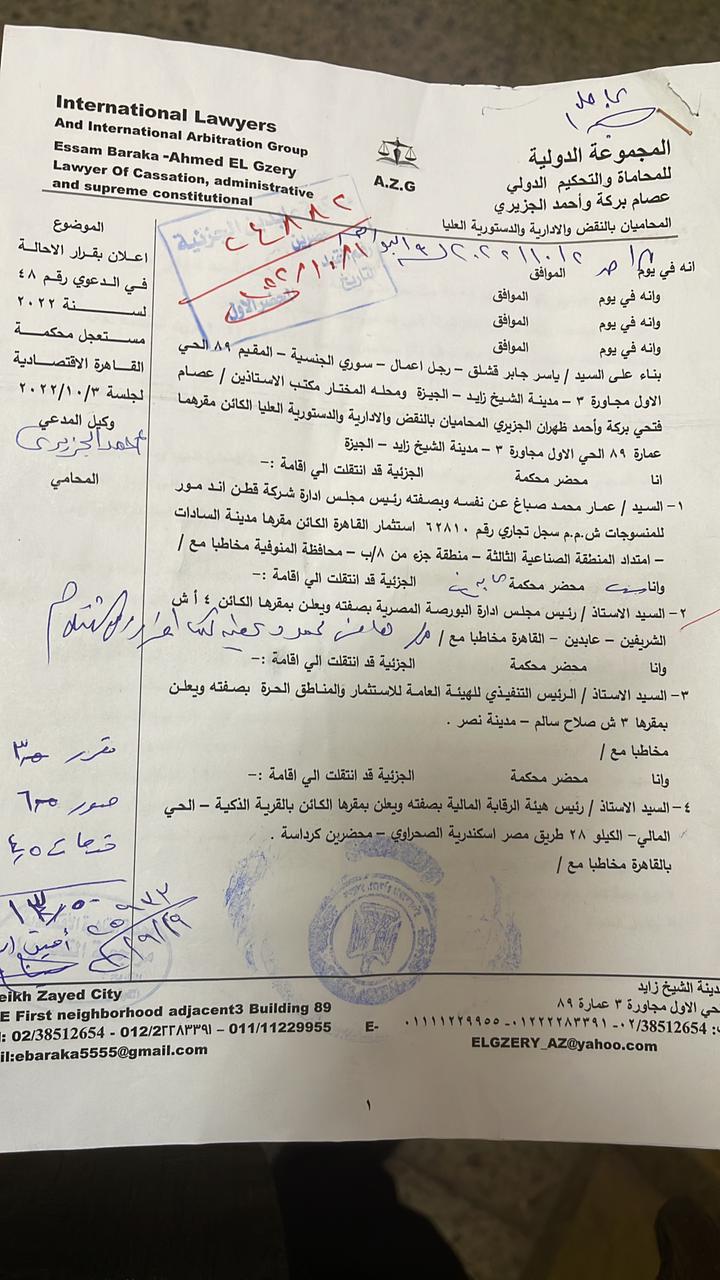 International Lawyers
And International Arbitration Group
Essam Baraka -Ahmed EL Gzery
Lawyer Of Cassation, administrative
and supreme constitutional
A.Z.G
المجموعة الدولية
للمحاماة والتحكيم الدولي
عصام بركة وأحمد الجزيري
المحاميان بالنقض والادارية والدستورية العليا
٢٤٨٨٢
الموضوع
اعلان بقرار الاحالة
في الدعوي رقم ٤٨
لسنة ٢٠٢٢
مستعجل محكمة
القاهرة الاقتصادية
لجلسة ٢٠٢٢/١٠/٣
وكيل المدعي
أحمد الجزيري
المحامي
انه في يوم الموافق
وانه في يوم الموافق
وانه في يوم الموافق
وانه في يوم الموافق
بناء على السيد / ياسر جابر قشلق – رجل اعمال – سوري الجنسية – المقيم ٨٩ الحي
الاول مجاورة ٣ – مدينة الشيخ زايد – الجيزة ومحله المختار مكتب الاستاذين / عصام
فتحي بركة وأحمد ظهران الجزيري المحاميان بالنقض والادارية والدستورية العليا الكائن مقرهما
عمارة ٨٩ الحي الاول مجاورة ٣ – مدينة الشيخ زايد – الجيزة
انا محضر محكمة الجزئية قد انتقلت الي اقامة :–
١– السيد / عمار محمد صباغ عن نفسه وبصفته رئيس مجلس ادارة شركة قطن اند مور
للمنسوجات ش.م.م سجل تجاري رقم ٦٢٨١٠ استثمار القاهرة الكائن مقرها مدينة السادات
– امتداد المنطقة الصناعية الثالثة – منطقة جزء من ٨/ب – محافظة المنوفية مخاطبا مع /
وانا محضر محكمة عابدين الجزئية قد انتقلت الي اقامة :–
٢– السيد الاستاذ / رئيس مجلس ادارة البورصة المصرية بصفته ويعلن بمقرها الكائن ٤ أ ش
الشريفين – عابدين – القاهرة مخاطبا مع /
وانا محضر محكمة الجزئية قد انتقلت الي اقامة :–
٣– السيد الاستاذ / الرئيس التنفيذي للهيئة العامة للاستثمار والمناطق الحرة بصفته ويعلن
بمقرها ٣ ش صلاح سالم – مدينة نصر .
مخاطبا مع /
وانا محضر محكمة الجزئية قد انتقلت الي اقامة :–
٤– السيد الاستاذ / رئيس هيئة الرقابة المالية بصفته ويعلن بمقرها الكائن بالقرية الذكية – الحي
المالي– الكيلو ٢٨ طريق مصر اسكندرية الصحراوي – محضرين كرداسة .
بالقاهرة مخاطبا مع /
مقرر
صور
eikh Zayed City
E First neighborhood adjacent3 Building 89
: 02/38512654 - 012/2٢٢٨٣٣٩١ – 011/11229955 E-
il:ebaraka5555@gmail.com
دينة الشيخ زايد
حي الاول مجاورة ٣ عمارة ٨٩
: 02/38512654 -٠١٢٢٢٢٨٣٣٩١ -٠١١١١٢٢٩٩٥٥
ELGZERY_AZ@yahoo.com
١